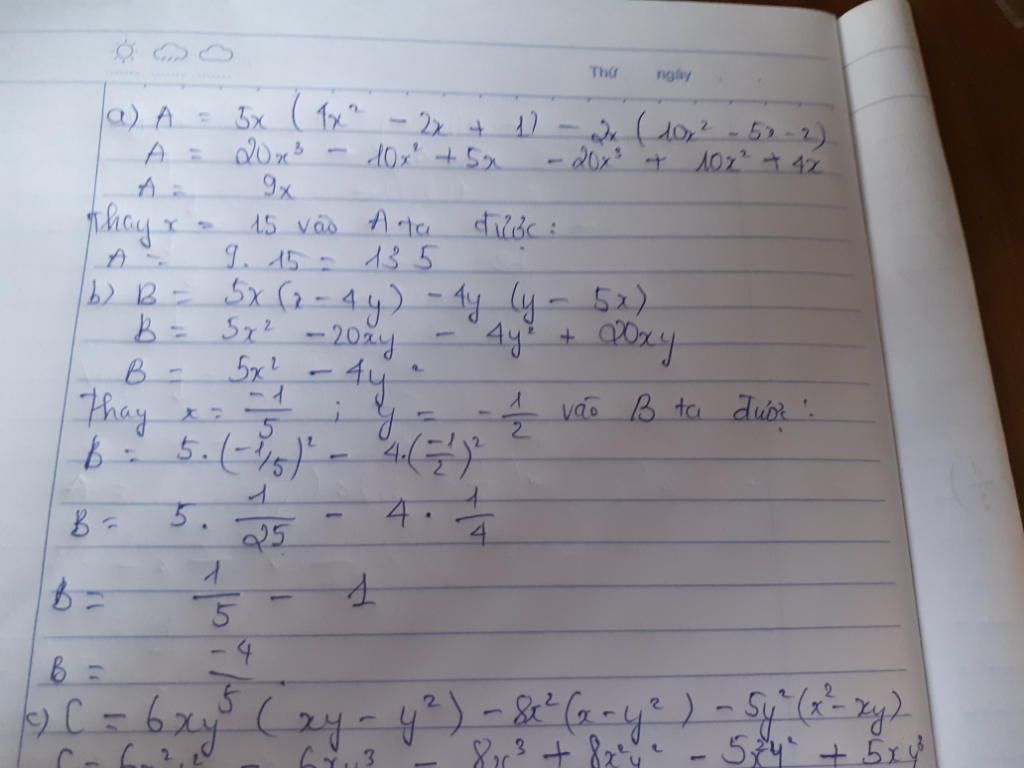 Thứ ngày
a) A = 5x (4x² - 2x + 1) - 2x (10x² - 5x - 2)
A = 20x³ - 10x² + 5x - 20x³ + 10x² + 4x
A = 9x
Thay x = 15 vào A ta được:
A = 9.15 = 135
b) B = 5x(x - 4y) - 4y (y - 5x)
B = 5x² - 20xy - 4y² + 20xy
B = 5x² - 4y²
Thay x = -1/5 ; y = -1/2 vào B ta được:
B = 5.(-1/5)² - 4.(-1/2)²
B = 5. 1/25 - 4. 1/4
B = 1/5 - 1
B = -4/5.
c) C = 6xy (xy - y²) - 8x²(x - y²) - 5y²(x² - xy)
C = 6x²y² - 6xy³ - 8x³ + 8x²y² - 5x²y² + 5xy³